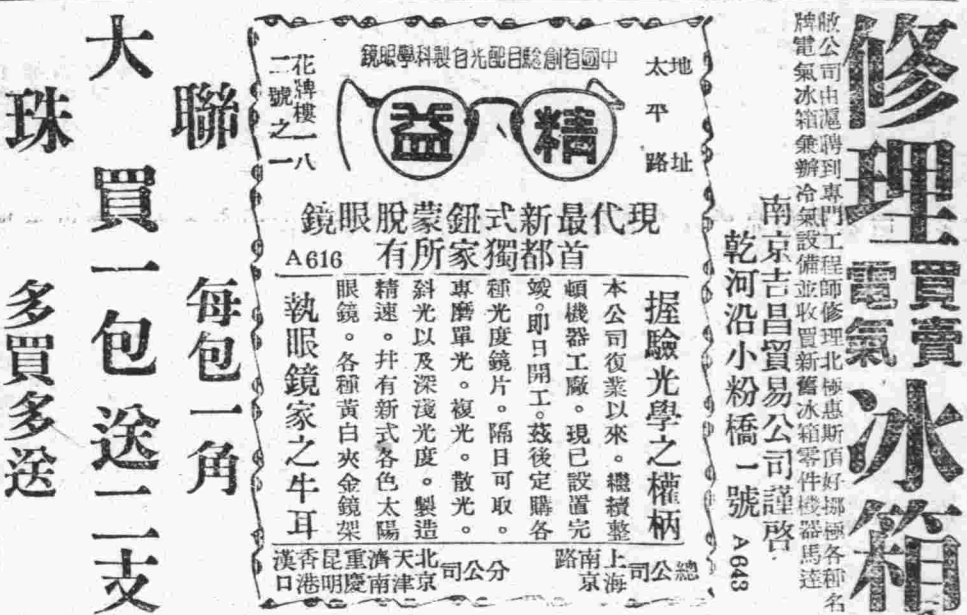 修理冰箱
買賣
電氣
敝公司由滬聘到專門工程師修理北極惠斯頂好挪極各種名
牌電氣冰箱兼辦冷氣設備並收買新舊冰箱零件機器馬達
南京吉昌貿易公司謹啓
乾河沿小粉橋一號
A643
中國首創驗目配光自製科學眼鏡
地址
太平路
花牌樓一八
二號之一
精益
現代最新式鈕蒙脫眼鏡
首都獨家所有
A616
握驗光學之權柄
本公司復業以來。繼續整
頓機器工廠。現已設置完
竣。即日開工。茲後定購各
種光度鏡片。隔日可取。
專磨單光。複光。散光。
斜光以及深淺光度。製造
精速。幷有新式各色太陽
眼鏡。各種黃白夾金鏡架
執眼鏡家之牛耳
總公司
上海
南京
路
分公司
北京
天津
濟南
重慶
昆明
香港
漢口
聯珠
每包一角
大買一包送二支
多買多送